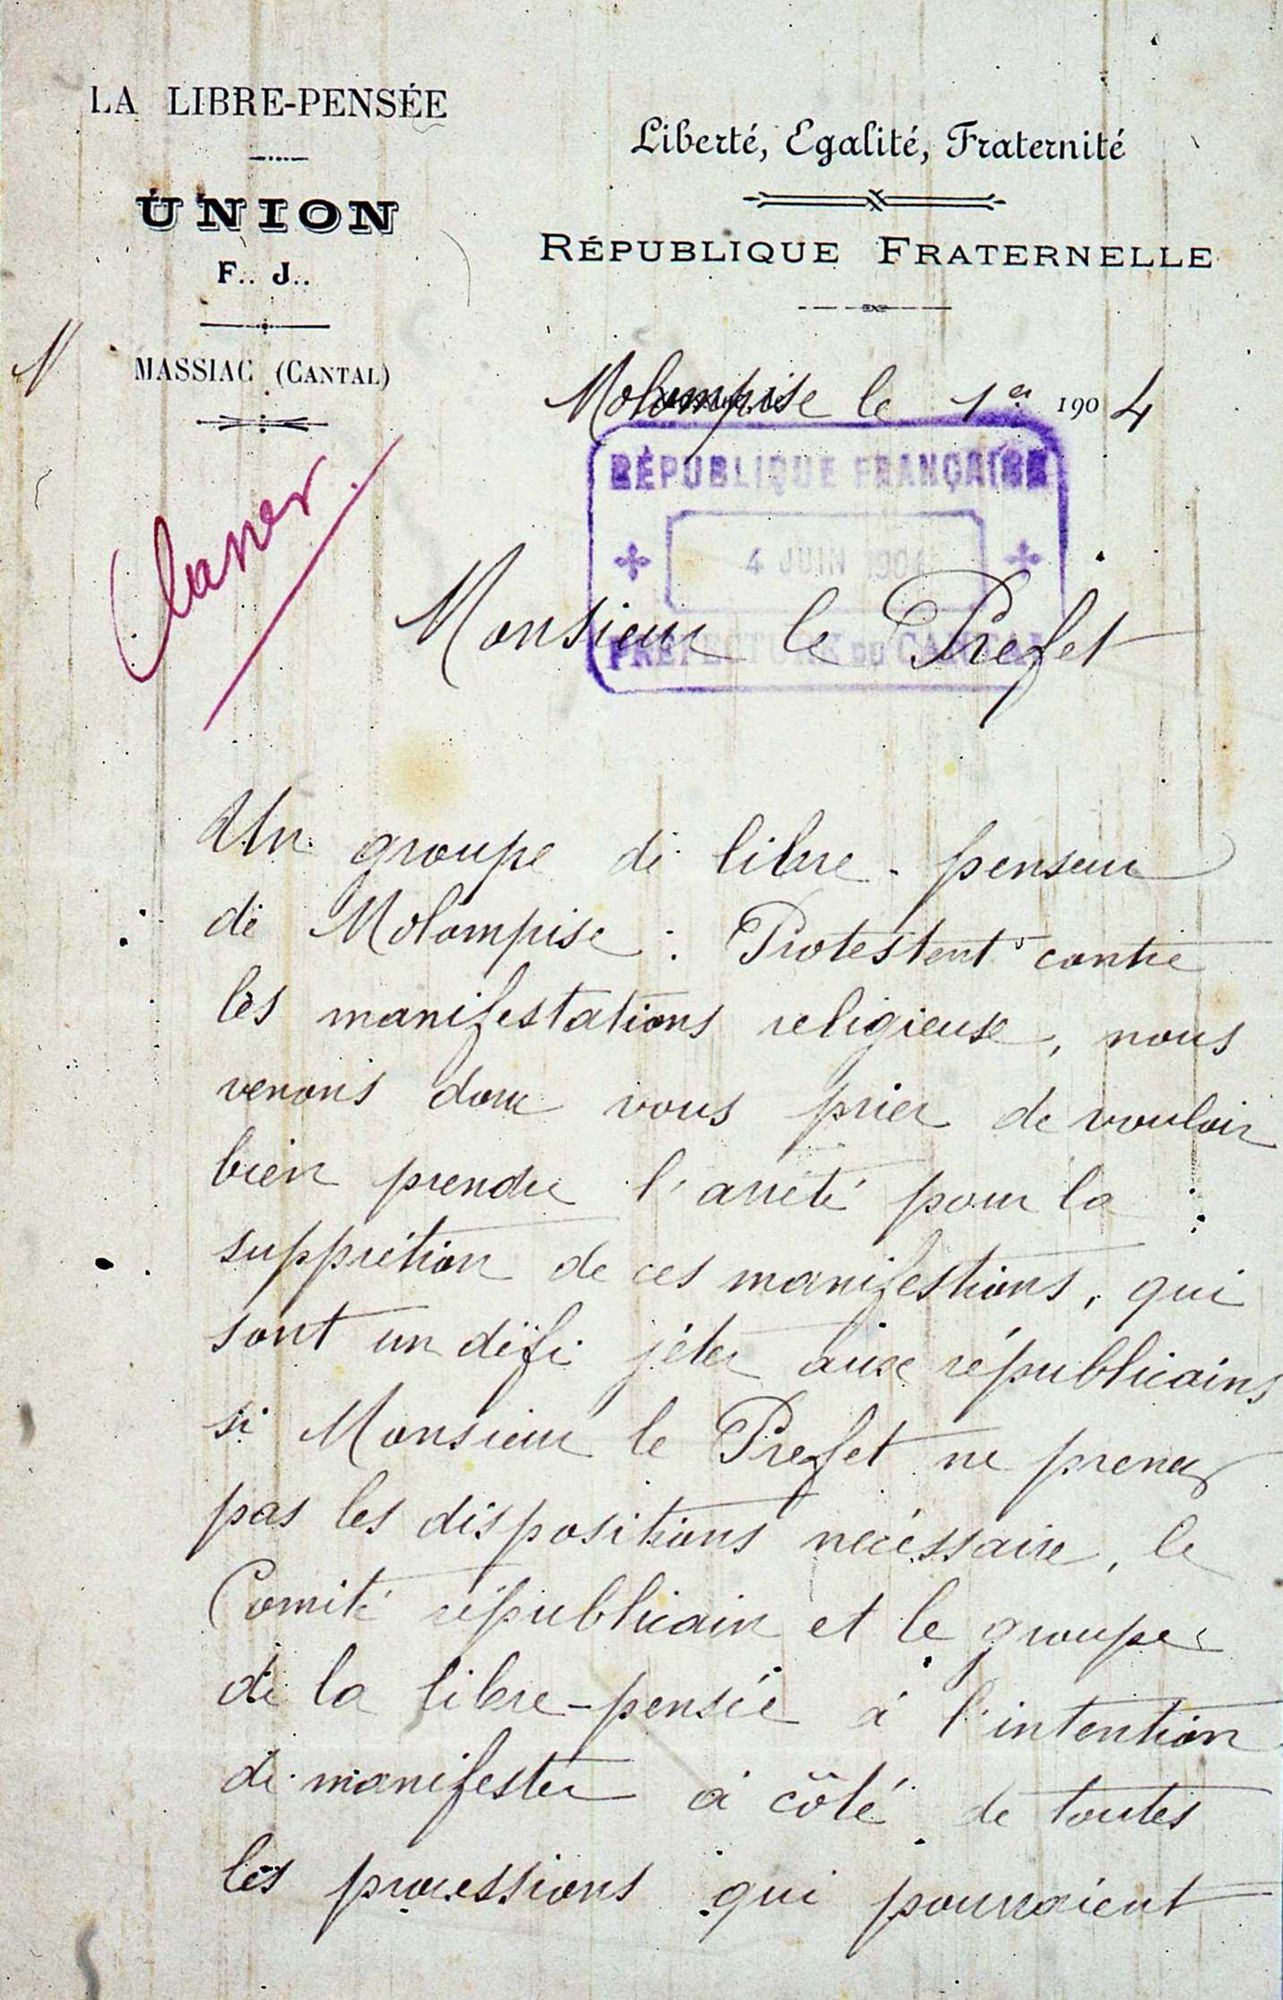 LA LIBRE-PENSÉE
UNION
F.. J..
MASSIAC (CANTAL)
Liberté, Egalité, Fraternité
RÉPUBLIQUE FRATERNELLE
Molompise le 1er 1904
RÉPUBLIQUE FRANÇAISE
4 JUIN 1904
PRÉFECTURE DU CANTAL
Classer
Monsieur le Préfet
Un groupe de libre-penseur
de Molompise : Protestent contre
les manifestations religieuse, nous
venons donc vous prier de vouloir
bien prendre l'arrêté pour la
supprétion de ces manifestions, qui
sont un défi jéter aux républicains
si Monsieur le Prefet ne prener
pas les dispositions nécéssaire, le
Comité républicain et le groupe
de la libre-pensée à l'intention
de manifester à côté de toutes
les processions qui pourraient